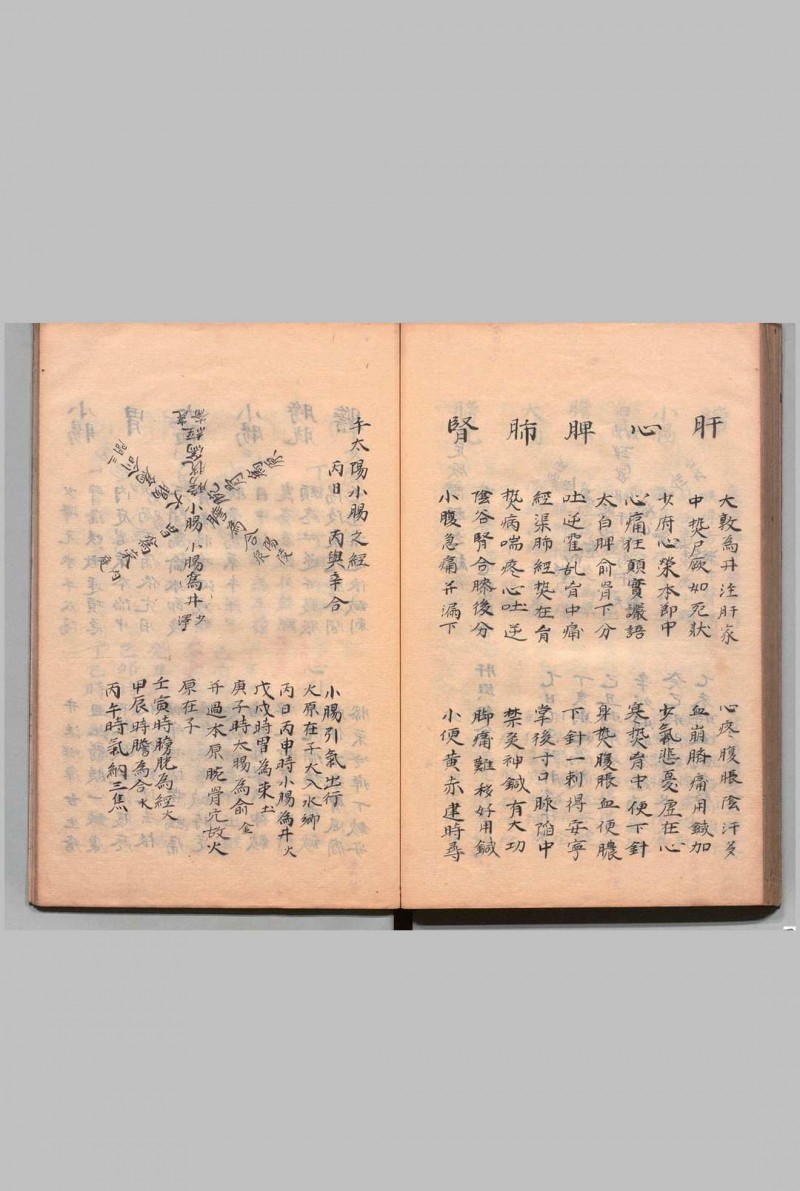 肝 心 脾 肺 腎
大敦為井注肝家 心疼腹脹陰汗多
中焚尸厥如死狀 血崩臍痛用鍼加
少府心榮本節中 少氣悲憂虛在心
心痛狂顛實譫語 寒焚胷中便下針
太白脾俞骨下分 身焚腹脹血便膿
吐逆霍乱胷中痛 下針一刺得安寧
經渠肺經焚在胷 掌後寸口脉陷中
焚病喘疼心吐逆 禁灸神鍼有大功
陰谷腎合膝後分 脚痛難移好用鍼
小腹急痛并漏下 小便黄赤建時尋
手太陽小腸之經
丙日 丙與辛合
小腸小腸為井少澤
膽為合陽陵
膀胱為經
大腸為俞三間
胃為
小腸引氣出行
火原在子火入水鄉
丙日丙申時小腸為井火
戊戌時胃為荣土
庚子時大腸為俞金
并過本原腕骨穴故火
原在子
壬寅時膀胱為經火
甲辰時膽為合水
丙午時氣納三焦